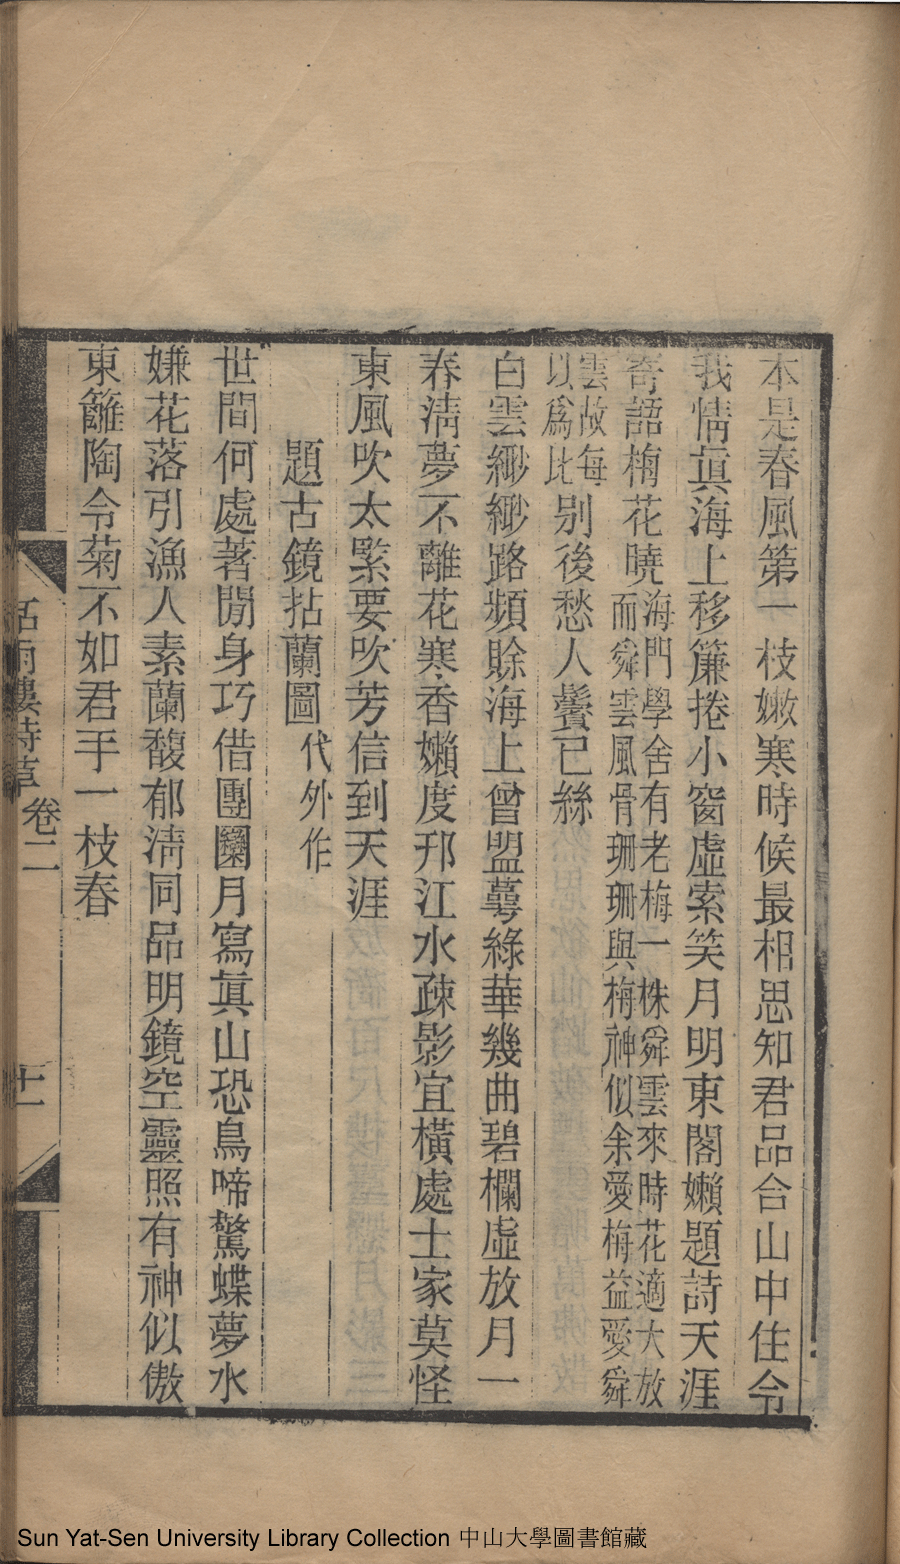 本是春風第一枝嫩寒時候最相思知君品合山中住令
我情眞海上移簾捲小窗虛索笑月明東閣嬾題詩天涯
寄語梅花曉海門學舍有老梅一株舜雲來時花適大放
而舜雲風骨珊珊與梅神似余愛梅益愛舜
雲故每
以爲比别後愁人鬢已絲
白雲緲緲路頻賒海上曾盟萼綠華幾曲碧欄虛放月一
春淸夢不離花寒香嬾度邗江水疎影宜橫處士家莫怪
東風吹太緊要吹芳信到天涯
題古鏡拈蘭圖代外作
世間何處著閒身巧借團圞月寫眞山恐鳥啼驚蝶夢水
嫌花落引漁人素蘭馥郁淸同品明鏡空靈照有神似傲
東籬陶令菊不如君手一枝春
雨樓詩草
卷二
十一
Sun Yat-Sen University Library Collection 中山大學圖書館藏